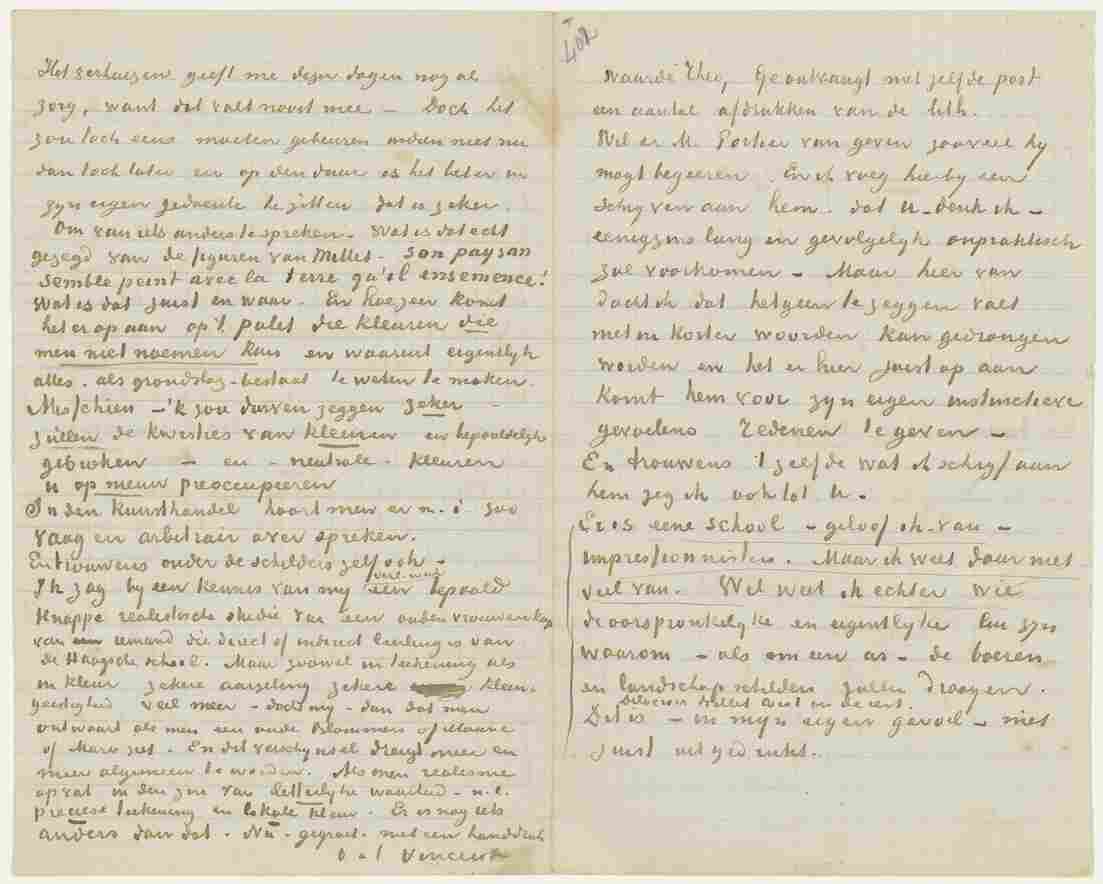 Het verhuizen geeft me dezer dagen nog al
zorg, want dat valt nooit mee – Doch het
zou toch eens moeten gebeuren indien niet nu
dan toch later en op den duur is het beter in
zijn eigen gedoente te zitten dat is zeker.
Om van iets anders te spreken – Wat is dat echt
gezegd van de figuren van Millet – Son paysan
semble peint avec la terre qu'il ensemence!
Wat is dat juist en waar. En hoezeer komt
het er op aan op 't palet die kleuren die
men niet noemen kan en waaruit eigentlijk
alles – als grondslag – bestaat te weten te maken.
Misschien – 'k zou durven zeggen zeker –
zullen de kwesties van kleuren en bepaaldelijk
gebroken – en – neutrale – kleuren
u op nieuw preoccupeeren
In den kunsthandel hoort men er m.i. zoo
vaag en arbitrair over spreken.
En trouwens onder de schilders zelf ook –
Ik zag bij een kennis van mij een bepaald
knappe realistische studie van een oude vrouwenkop
van iemand die direct of indirect leerling is van
de Haagsche school. Maar zoowel in teekening als
in kleur zekere aarzeling zekere klein-
geestigheid veel meer – docht mij – dan dat men
ontwaart als men een oude Blommers of Mauve
of Maris ziet. En dit verschijnsel dreigt meer en
meer algemeen te worden. Als men realisme
opvat in den zin van letterlijke waarheid – n.l.
preciese teekening en lokale kleur. Er is nog iets
anders dan dat. Nu – gegroet – met een handdruk
t. à t. Vincent
402
Waarde Theo, Ge ontvangt met zelfde post
een aantal afdrukken van de lith.
Wil er M. Portier van geven zooveel hij
mogt begeeren. En ik voeg hierbij een
schrijven aan hem. dat u – denk ik –
eenigzins lang en gevolgelijk onpraktisch
zal voorkomen – Maar hier van
dacht ik dat hetgeen te zeggen valt
niet in korter woorden kan gedrongen
worden en het er hier juist op aan
komt hem voor zijn eigen instinctieve
gevoelens redenen te geven –
En trouwens 't zelfde wat ik schrijf aan
hem zeg ik ook tot U.
Er is eene school – geloof ik – van –
impressionnisten. Maar ik weet daar niet
veel van. Wel weet ik echter wie
de oorspronkelijke en eigentlijke lui zijn
waarom – als om een as – de boeren
en landschapschilders zullen draayen.
Delacroix Millet Corot en de rest.
Dit is – in mijn eigen gevoel – niet
juist uitgedrukt..